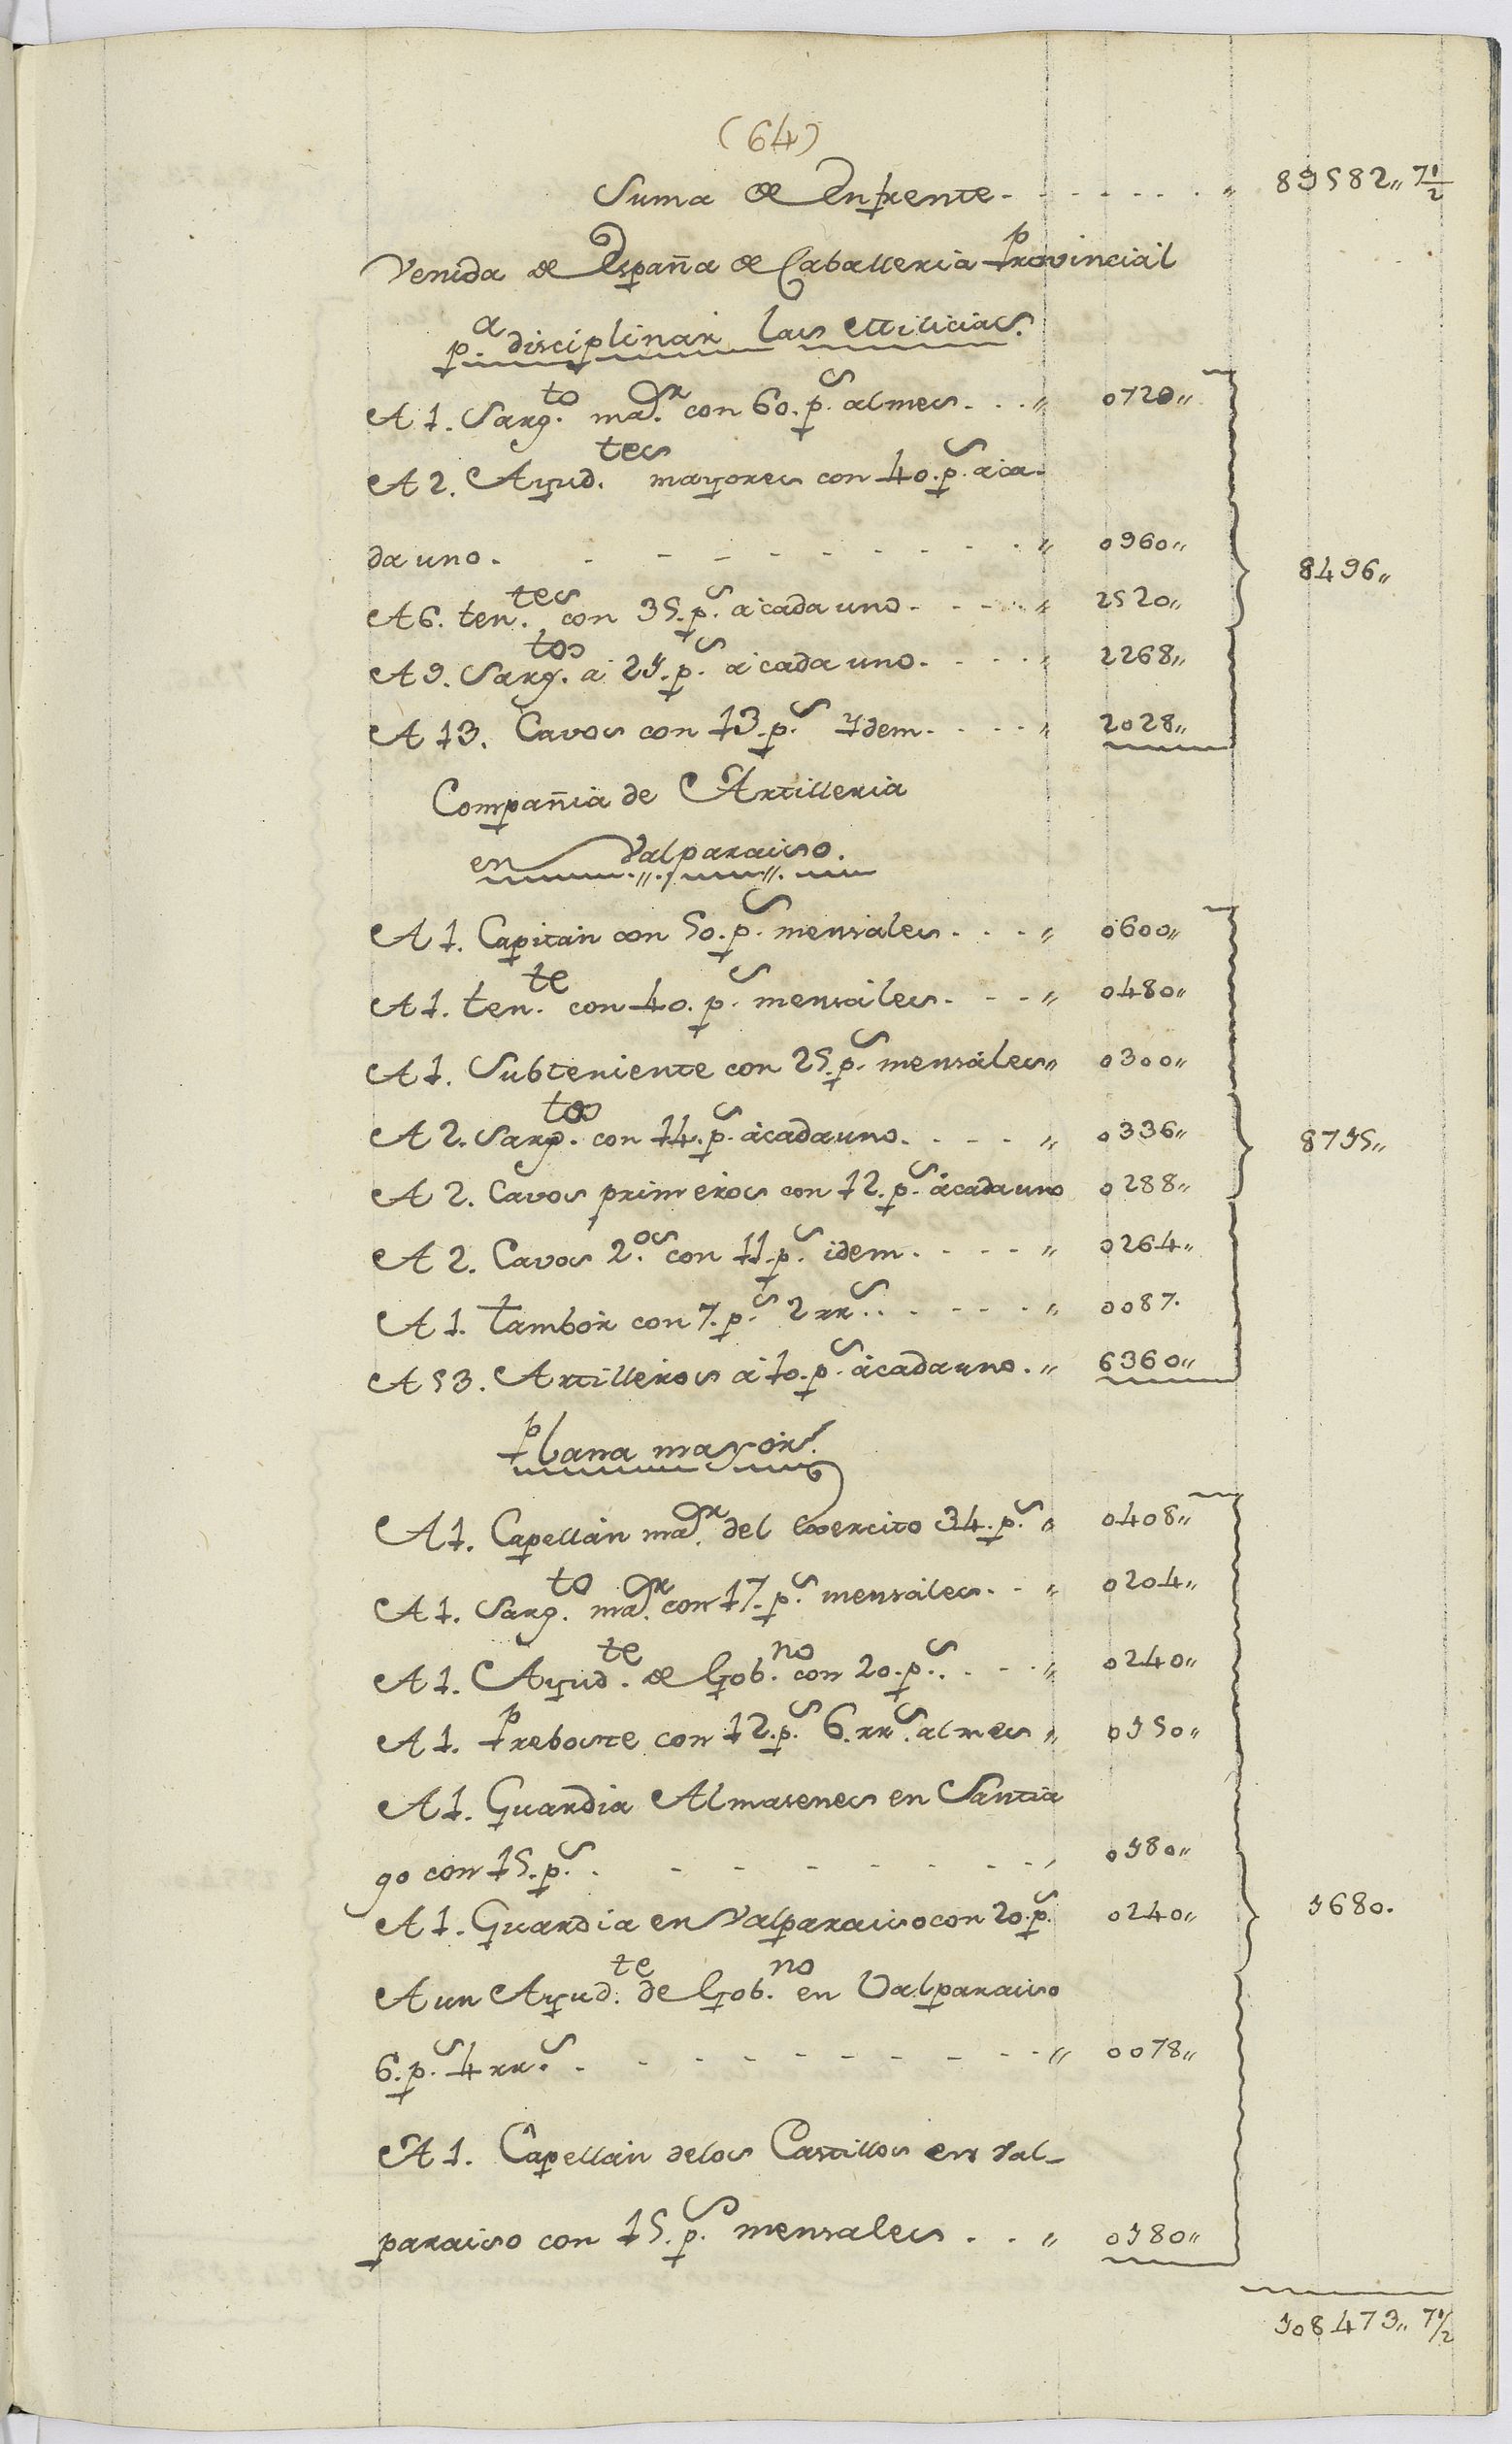 (64)
Suma de Enfrente - - - - - - - " 89582,, 7 1/2
Venida de España de Caballeria Provincial
p.a disciplinar las Milicias.
A 1. Sarg.to ma.or con 60. p.s al mes. . . " 0720,,
A 2. Ayud.tes mayores con 40. p.s a ca-
da uno. - - - - - - - - - " 0960,,
A 6. ten.tes con 35. p.s á cada uno. - - - " 2520,, 8496,,
A 9. Sarg.tos a 21. p.s a cada uno. . . . " 2268,,
A 13. Cavos con 13. p.s Ydem. . . . " 2028,,
Compañia de Artilleria
en Valparaiso.
A 1. Capitan con 50. p.s mensales. . . - " 0600,,
A 1. ten.te con 40. p.s mensales. - - " 0480,,
A 1. Subteniente con 25. p.s mensales " 0300,,
A 2. Sarg.tos con 14. p.s a cada uno. . - - . " 0336,, 8715,,
A 2. Cavos primeros con 12. p.s á cada uno 0288,,
A 2. Cavos 2.os con 11. p.s idem. . - - - " 0264,,
A 1. tambor con 7. p.s 2 rr.s . . - - - . " 0087.
A 53. Artilleros a 10. p.s á cada uno. " 6360,,
Plana mayor.
A 1. Capellan ma.or del Exercito 34. p.s " 0408,,
A 1. Sarg.to ma.or con 17. p.s mensales. - " 0204,,
A 1. Ayud.te de Gob.no con 20. p.s . . - - . " 0240,,
A 1. Preboste con 12. p.s 6. rr.s al mes " 0150,,
A 1. Guardia Almasenes en Santia
go con 15. p.s . - - - - - - - 0180,,
A 1. Guardia en Valparaiso con 20. p.s 0240,, 1680.
A un Ayud.te de Gob.no en Valparaiso
6. p.s 4 rr.s . - - - - - - - - " 0078,,
A 1. Capellan delos Castillos en Val-
paraiso con 15. p.s mensales . . " 0180,,
108473,, 7 1/2